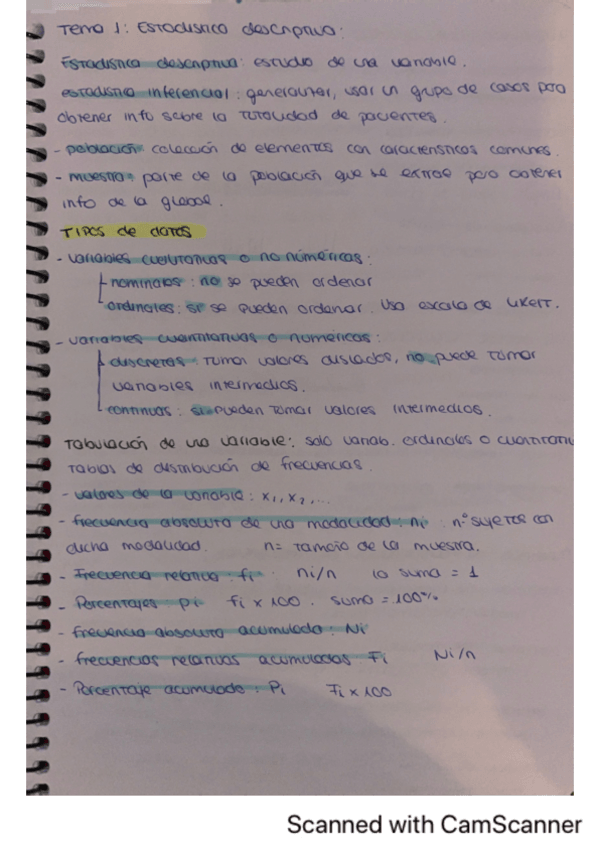 Tema 1: Estadística descriptiva:
Estadística descriptiva: estudio de una variable.
estadística inferencial: generalizar, usar un grupo de casos para
obtener info sobre la totalidad de pacientes.
- población: colección de elementos con características comunes.
- muestra: parte de la población que se extrae para obtener
info de la global.
TIPOS de datos
- variables cualitativas o no numéricas:
nominales: no se pueden ordenar
ordinales: si se pueden ordenar. Usa escala de Likert.
- variables cuantitativas o numéricas:
discretas: toman valores aislados, no puede tomar
variables intermedios.
continuas: si pueden tomar valores intermedios.
Tabulación de una variable: solo variab. ordinales o cuantitativ
Tablas de distribución de frecuencias.
- valores de la variable: x₁, x₂, ...
- frecuencia absoluta de una modalidad: ni: nº sujetos con
dicha modalidad. n= tamaño de la muestra.
- Frecuencia relativa: fi ni/n la suma = 1
- Porcentajes pi fi x 100. suma = 100%
- frecuencia absoluta acumulada: Ni
- frecuencias relativas acumuladas Fi Ni/n
- Porcentaje acumulado: Pi Fi x 100
Scanned with CamScanner